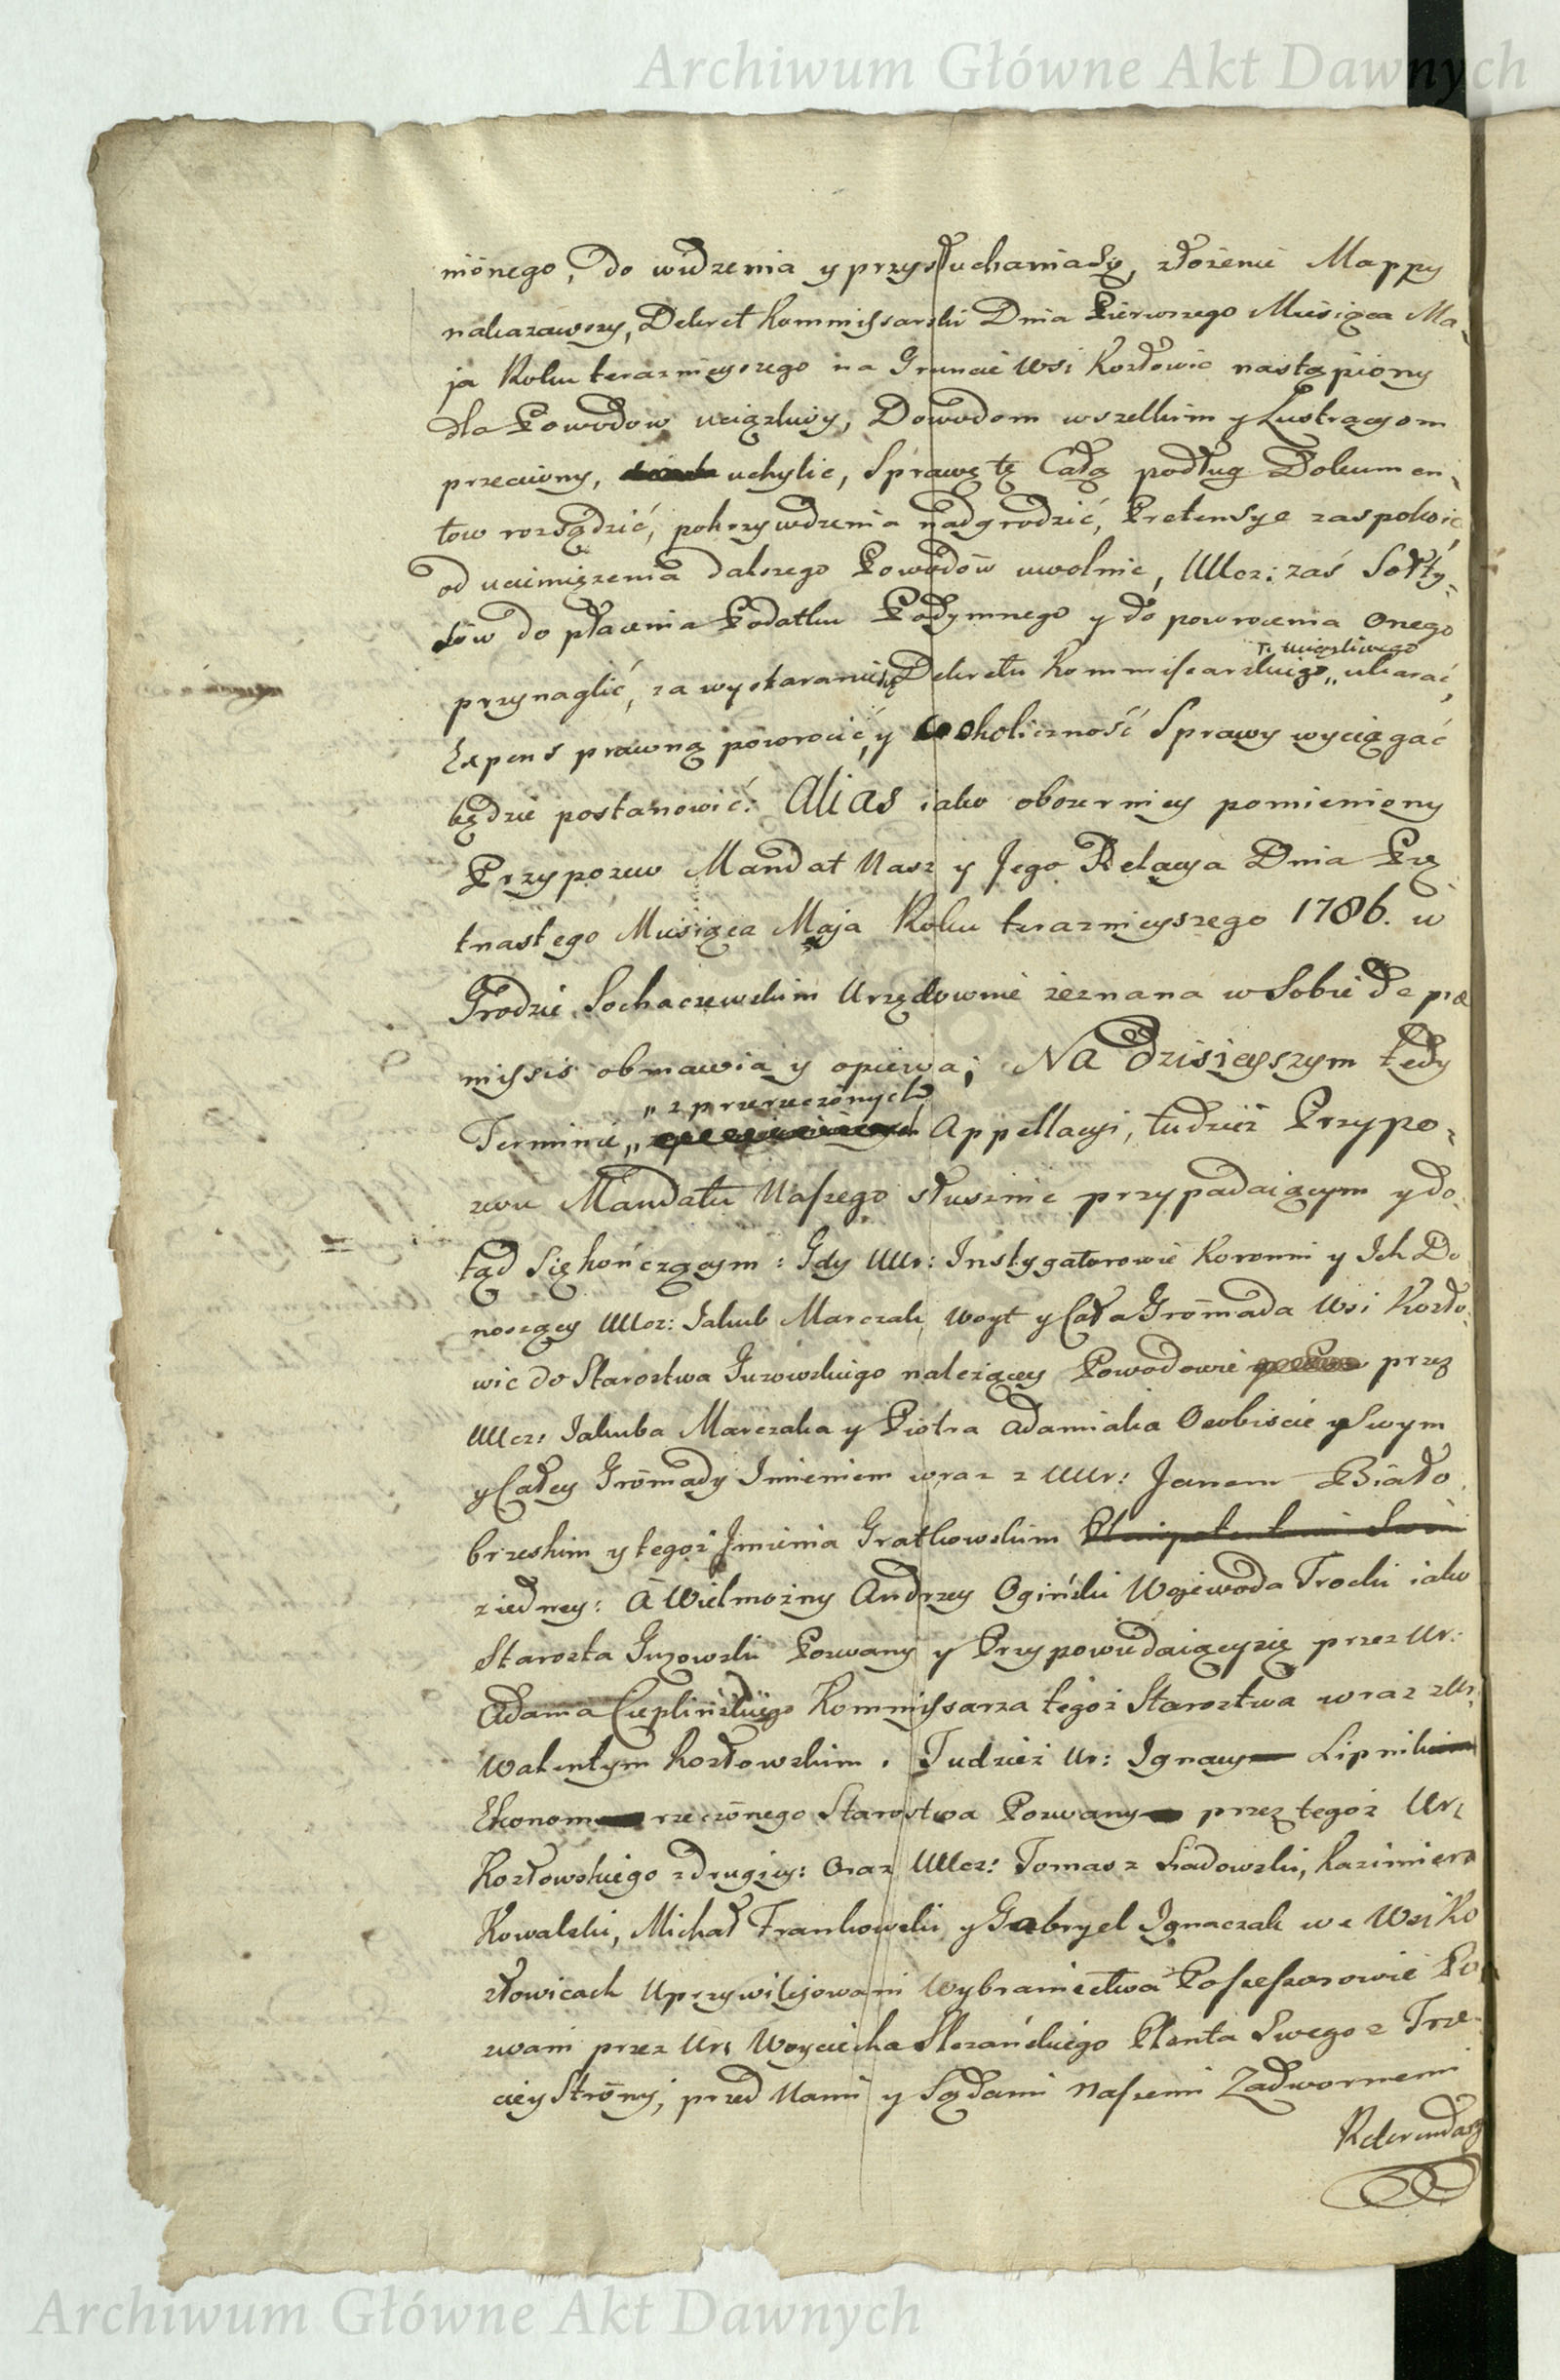 Archiwum Główne Akt Dawnych
nionego, do widzenia y przysłuchania Się, złożenie Mappy
nakazawszy, Dekret Kommissarski Dnia Pierwszego Miesiąca Ma-
ja Roku teraznieyszego na Gruncie Wsi Kozłowic nastąpiony
dla Powodow uciązliwy, Dowodom wszelkim y Lustracyom
przeciwny, uchylic, Sprawę tę Całą podług Dokumen-
tow rozsądzić, pokrzywdzenia nadgrodzić, Pretensye zaspokoic
od uciemiężenia dalszego Powodów uwolnic, UUcz: zaś Sołty-
sów do płacenia Podatku Podymnego y do powrocenia onego
przynaglić, za wystaranie się Dekretu Kommissarskiego „ ukarać,
„ uciązliwego
Expens prawną powrocić, y okoliczność Sprawy wyciągać
będzie postanowić: Alias iako obszerniey pomieniony
Przypozew Mandat Nasz y Jego Relacya Dnia Pię
tnastego Miesiąca Maja Roku teraznieyszego 1786. w
Grodzie Sochaczewskim Urzędownie zeznana w Sobie de præ
missis obmawia y opiewa; Na dzisieyszym tedy
„ z przerzeczonych
Terminie „ Appellacyi, tudzież Przypo-
zwu Mandatu Naszego słusznie przypadaiącym y do-
tąd się kończącym: Gdy UUr: Instygatorowie Koronni y Ich Do
noszący UUcz: Jakub Marczak, Woyt y Cała Gromada Wsi Kozło-
wic do Starostwa Guzowskiego należący Powodowie przez
UUcz: Jakuba Marczaka y Piotra Adamiaka Osobiscie y Swym
y Całey Gromady Imieniem wraz z UUr: Janem Biało
brzeskim y tegoż Jmienia Gratkowskim Plenipotentami Swemi
z iedney: A Wielmożny Andrzey Ogiński Wojewoda Trocki iako
Starosta Guzowski Pozwany y Przypowiedaiącysię przez Ur:
Adama Cieplińskiego Kommissarza tegoż Starostwa wraz z Ur:
Walentym Kozłowskim. Tudzież Ur: Ignacy Lipnik
Ekonom rzeczonego Starostwa Pozwany przez tegoż Ur:
Kozłowskiego z drugiey: Oraz UUcz: Tomasz Siadowski, Kazimierz
Kowalski, Michał Frankowski y Gabryel Ignaczak we Wsi Ko
złowicach Uprzywilejowani Wybraniectwa Possessorowie Po
zwani przez Ur: Woyciecha Skrzańskiego Plenta Swego z Trze-
ciey Strony, przed Nami y Sądami Naszemi Zadwornemi
Referendar
Archiwum Główne Akt Dawnych